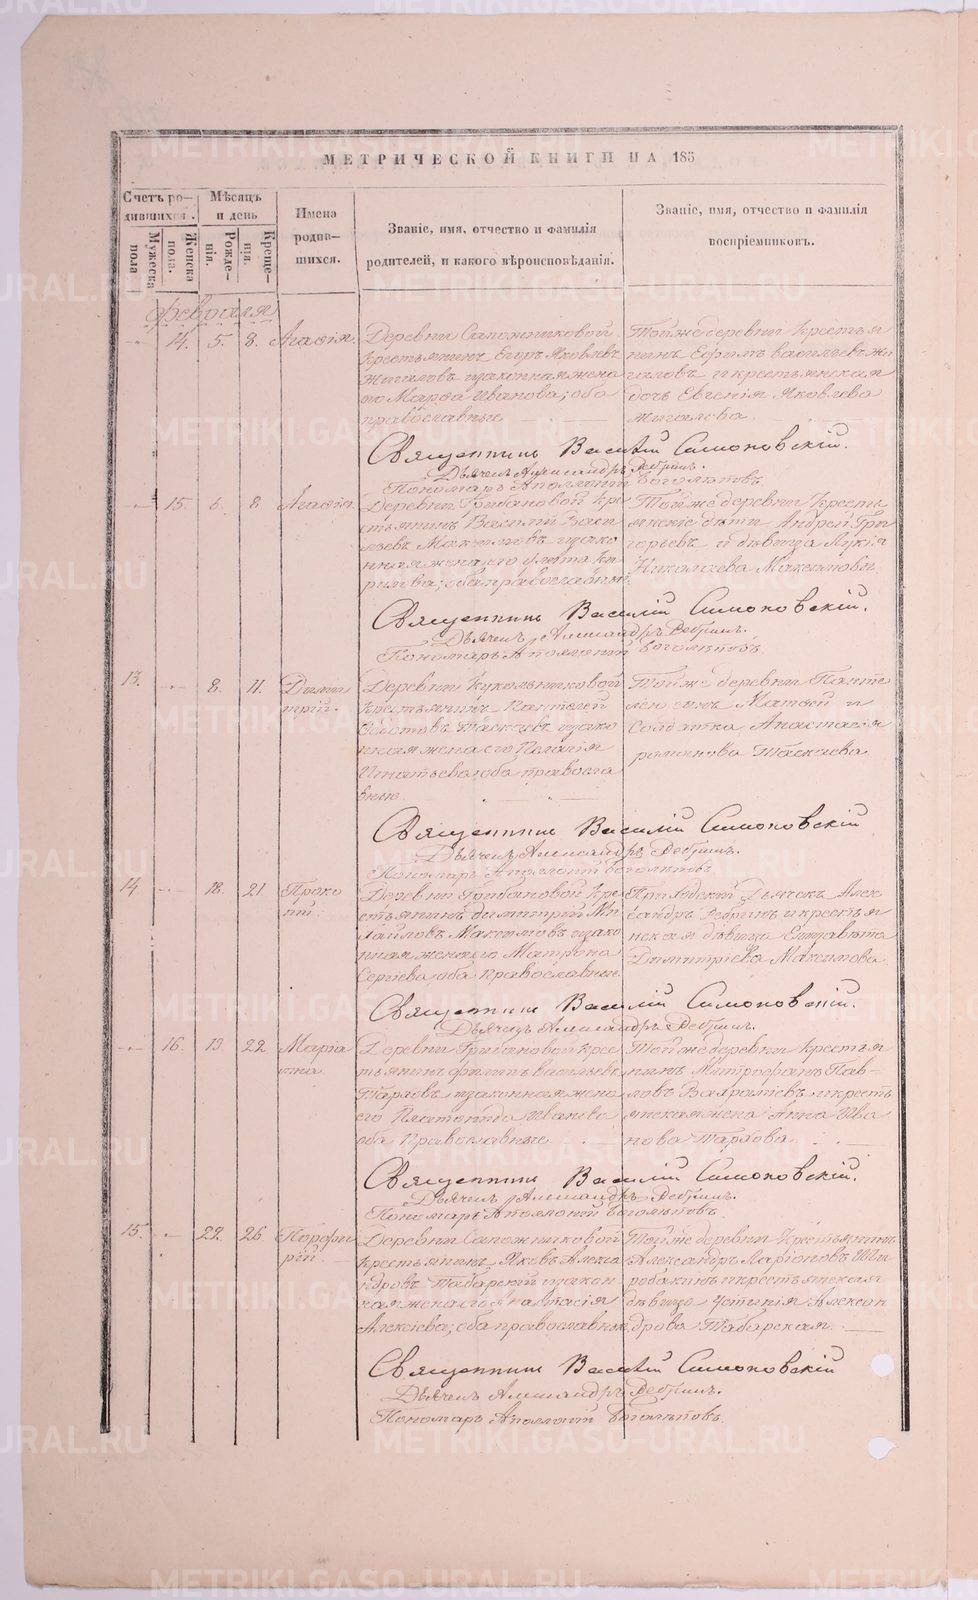 МЕТРИЧЕСКОЙ КНИГИ НА 185
Счетъ ро-
дившихся.
Мѣсяцъ
и день
Имена
родив-
шихся.
Званіе, имя, отчество и фамилія
родителей, и какого вѣроисповѣданія.
Званіе, имя, отчество и фамилія
воспріемниковъ.
Мужеска
пола
Женска
пола.
Рожде-
нія.
Креще-
нія.
Февраля
14. 5. 8. Агафія.
Деревни Сапожниковой
крестьянинъ Егоръ Яковлевъ
Жигаловъ и законная жена
его Марфа Иванова; оба
православные
Той же деревни крестья
нинъ Ефимъ Васильевъ Жи
галовъ и крестьянская
дочь Евгенія Яковлева
Жигалова.
Священникъ Василій Симоновскій.
Дьячекъ Александръ Ребринъ.
Пономарь Аполлоній Боголѣповъ
15. 6. 8 Агафія.
Деревни Грибановой кре
стьянинъ Василій Васи
льевъ и зако
нная жена его Ки
рилова; оба православные
Той же деревни кресть
янскіе дѣти Андрей Гри
горьевъ и дѣвица Лукія
Николаева Максимовы.
Священникъ Василій Симоновскій.
Дьячекъ Александръ Ребринъ.
Пономарь Аполлоній Боголѣповъ
13. 8. 11. Димит
трій.
Деревни Кукольниковой
крестьянинъ Пантелей
Таскаевъ и зако
нная жена его Пелагія
Игнатьева, оба правосла
вные
Той же деревни Панте
лея сынъ Матфей и
солдатка Анастасія
романова Таскаева.
Священникъ Василій Симоновскій
Дьячекъ Александръ Ребринъ.
Пономарь Аполлоній Боголѣповъ
14 18. 21 Проко
пій.
Деревни Грибановой кре
стьянинъ Димитрій Ми
хайловъ Максимовъ и зако
нная жена его Матрона
Сергіева, оба православные.
Приходскій Дьячекъ Алек
сандръ Ребринъ и крестья
нская дѣвица Елизавета
Димитріева Максимова
Священникъ Василій Симоновскій.
Дьячекъ Александръ Ребринъ.
16. 19. 22. Маріа
мна.
Деревни Грибановой крес
тьянинъ Филипъ Васильевъ
Тарховъ и законная жена
его Иванова
оба Православные
Той же деревни крестья
нинъ Митрофанъ Пав-
ловъ и кресть
янская жена Анна Ива
нова Тархова.
Священникъ Василій Симоновскій.
Дьячекъ Александръ Ребринъ.
Пономарь Аполлоній Боголѣповъ.
15. 22. 26 Порфи
рій.
Деревни Сапожниковой
крестьянинъ Яковъ Алекса
ндровъ Табарскій и закон
ная жена его Анастасія
Алексіева; оба православные
Той же деревни крестьянинъ
Александръ Ларіоновъ
и крестьянская
дѣвица Устинія Алексан
дрова Табарская.
Священникъ Василій Симоновскій
Дьячекъ Александръ Ребринъ.
Пономарь Аполлоній Боголѣповъ.
METRIKI.GASO-URAL.RU